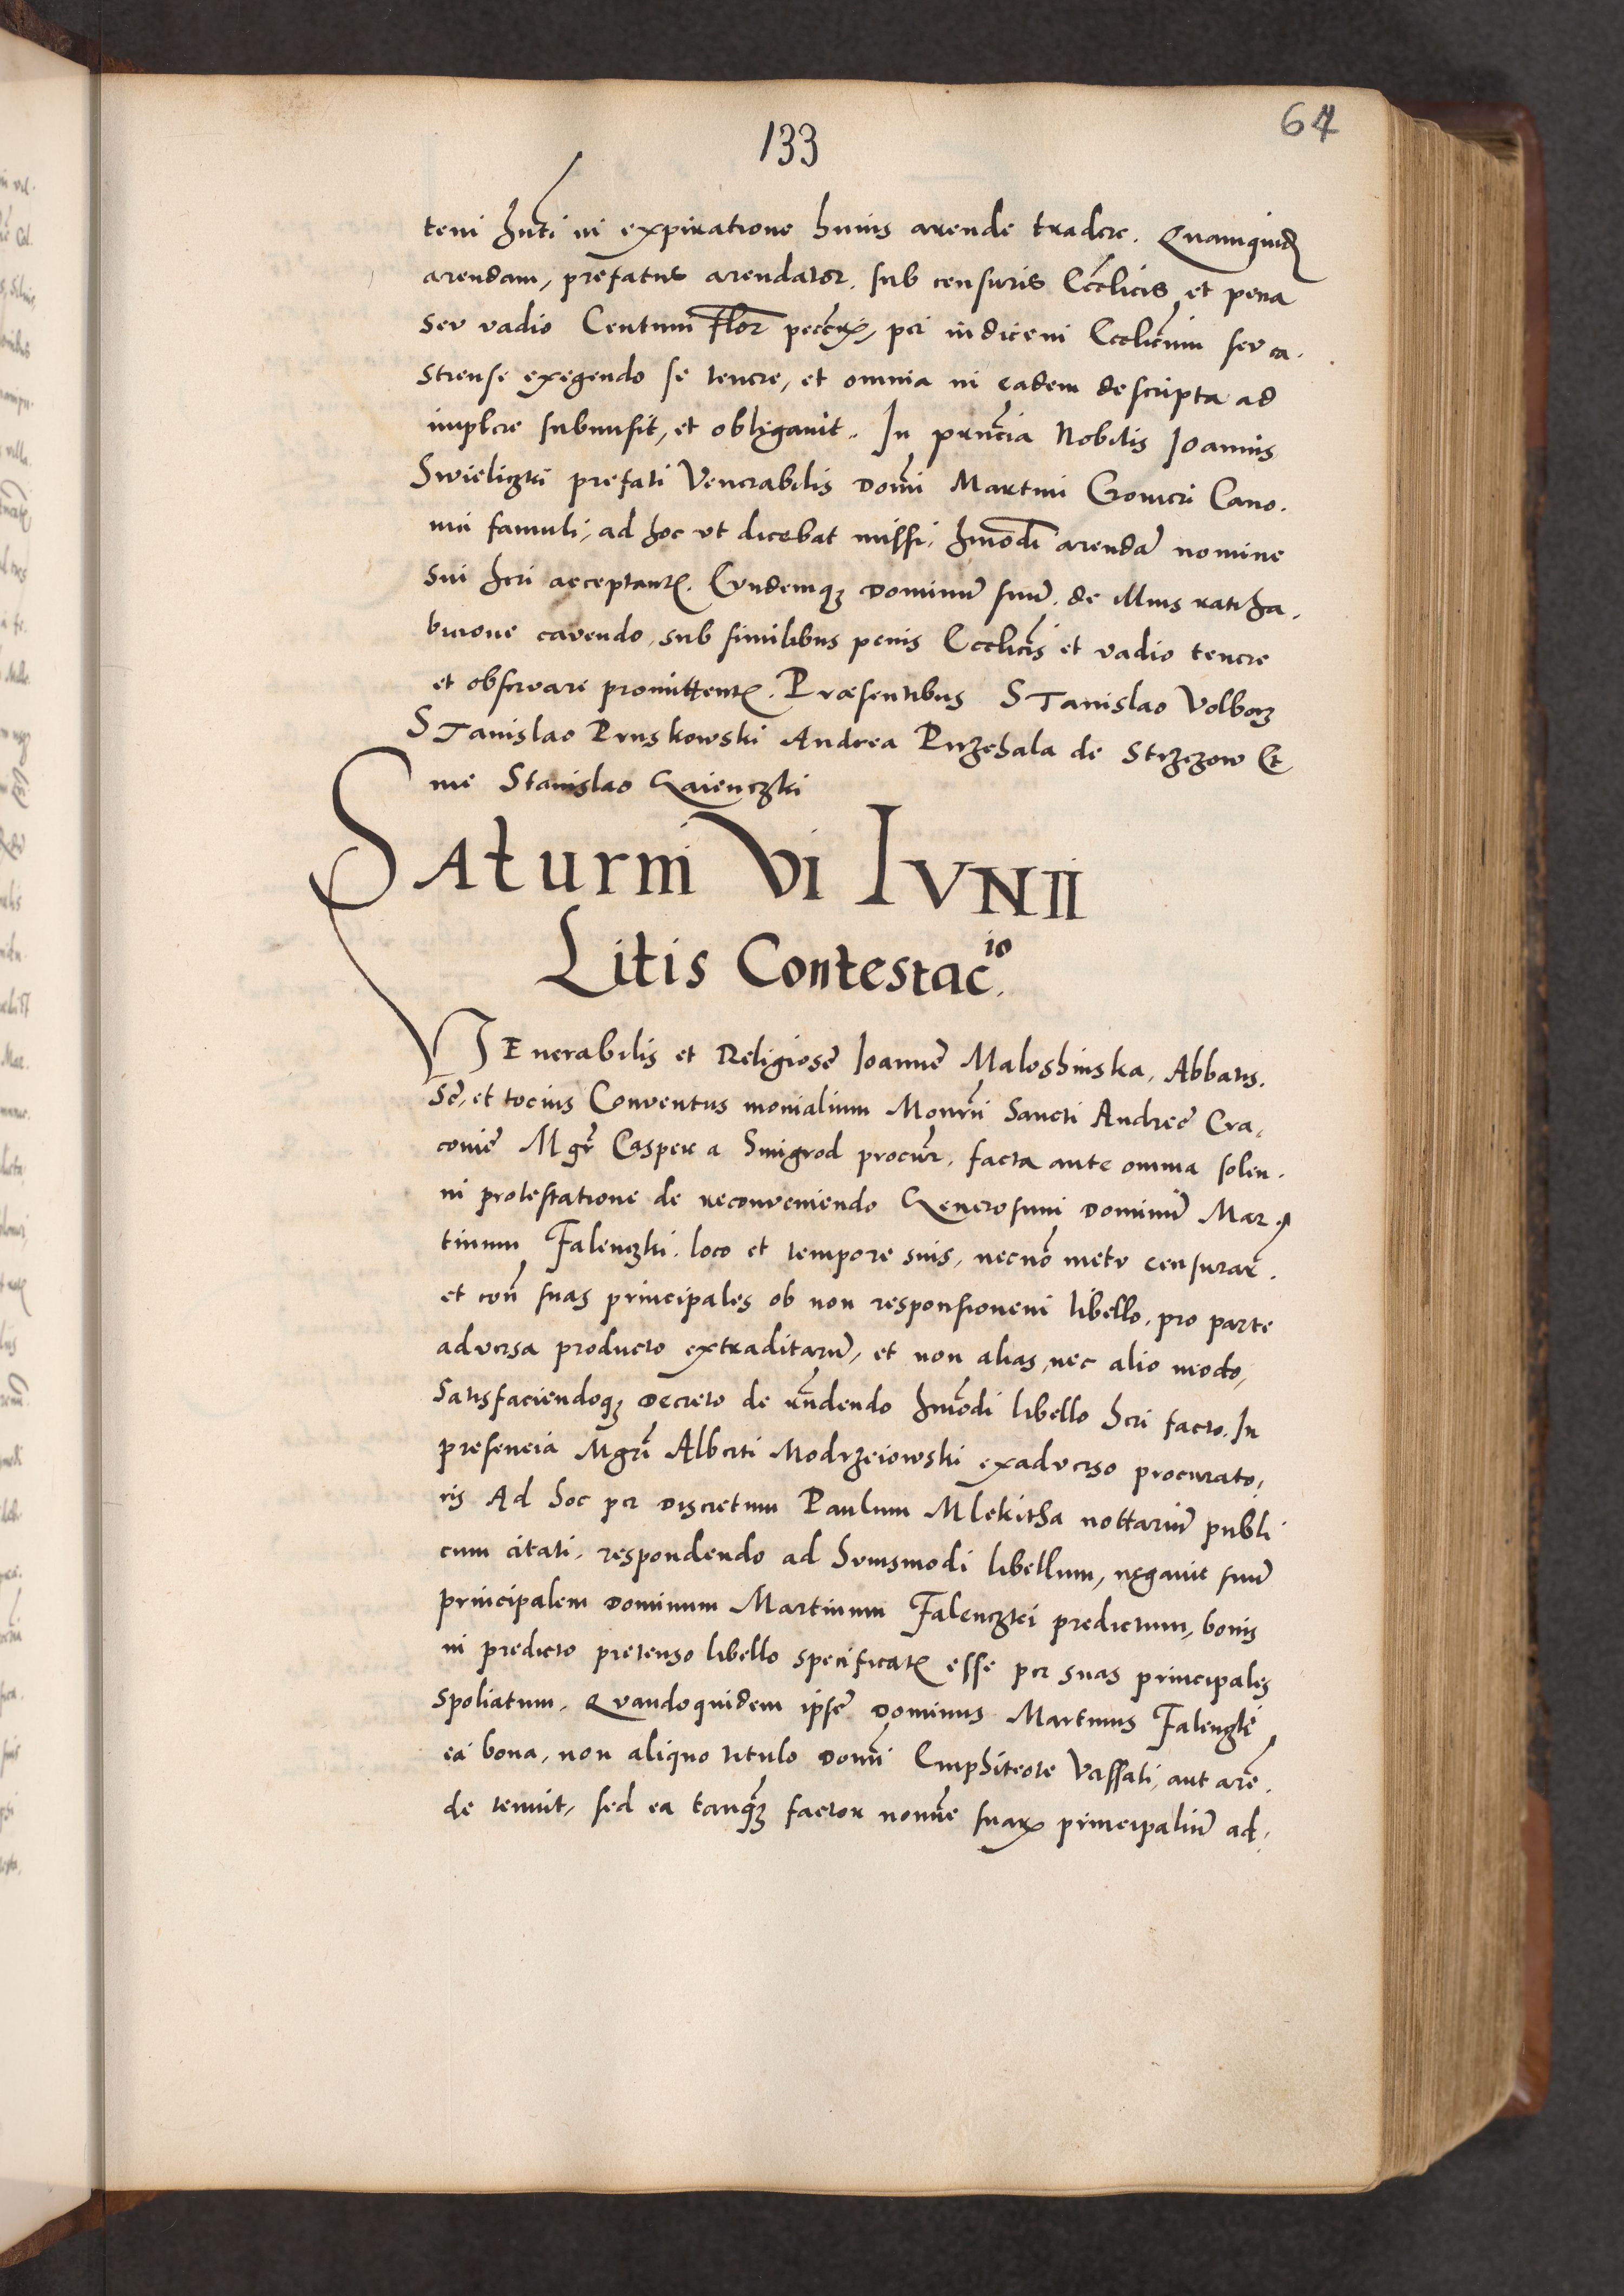 133
64
teni hnti in expiratione huius arende tradere. Quamquid
arendam, prefatus arendator. sub censuris Ecclicis et pena
seu vadio Centum Flor peccũ, per iudicem Ecclicum seu ca.
strense exegendo se tenere, et omnia in eadem descripta ad
implere submisit, et obligavit. In prñcia Nobilis Joannis
Swieliczki prefati Venerabilis Domĩ Martini Cromeri Cano.
nici famuli, ad hoc ut dicebat missi, hmõdi arendã nomine
sui heri acceptant. Eundemqꝫ Dominũ suũ. de illius ratiha.
bicione cavendo, sub similibus penis Ecclicis et vadio tenere
et observare promittent. Præsentibus STanislao Volborz
STanislao Pruskowski Andrea Przehala de Strzezow Et
me Stanislao Gaienczki
SAturni Vi IVNII
Litis Contestacio.
VEnerabilis et Religiosę Joannę Maloshinska, Abbatis.
sę, et tocius Conventus monialium Monrii Sancti Andreę Cra.
covię Mgr Casper a Smigrod procur. facta ante omnia solen.
ni protestatione de reconveniendo Generosum Dominũ Mar
tinum Falenczki. loco et tempore suis, necnõ metu censurar.
et con suas principales ob non responsionem libello. pro parte
adversa producto extraditarũ, et non alias, nec alio modo,
Satisfaciendoqꝫ Decreto de rñdendo hmõdi libello heri facto. In
presencia Mgri Alberti Modrzeiowski exadverso procurato,
ris Ad hoc per Discretum Paulum Mlekitha nottariũ publi
cum citati. respondendo ad huiusmodi libellum, negavit suũ
principalem Dominum Martinum Falenczki predictum, bonis
in predicto pretenso libello specificat esse per suas principales
spoliatum. Quandoquidem ipse Dominus Martinus Falenczki
ea bona, non aliquo titulo Domĩ Emphiteote Vassali, aut arẽ.
de tenuit, sed ea tanqꝫ factor nomĩe suarꝫ principaliũ ad.